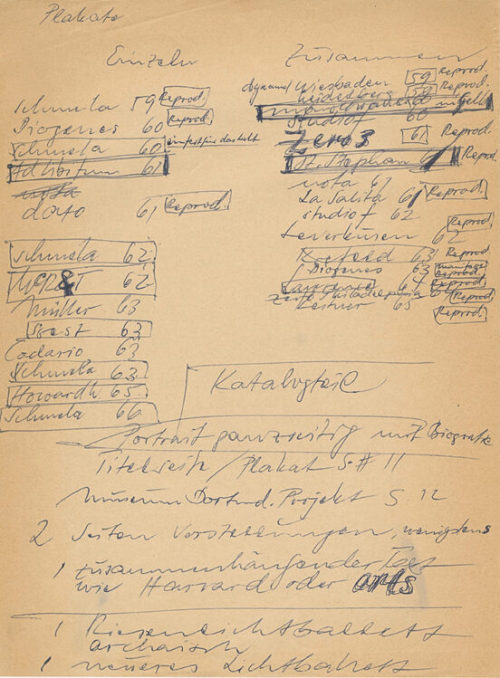 Plakate
Einzeln
Schmela 59 Reprod.
Diogenes 60 Reprod.
Schmela 60 ein fest für das licht
Ad libitum 61
nota
dato 61 Reprod.
Schmela 62
62
Müller 63
63
Cadario 63
Schmela 63
Howard W. 65
Schmela 66
Zusammen
dynamo1 Wiesbaden 59 Reprod.
Heidelberg 59 Reprod.
studio f 60
Zero 3 61 Reprod.
St. Stephan 61 Reprod.
nota 61
La Salita 61 Reprod.
studio f 62
Leverkusen 62 Reprod.
Krefeld 63 Reprod.
Diogenes 63 montage Reprod.
Zero Philadelphia Reprod.
Kestner 65 Reprod.
Katalogteil
Portrait ganzseitig mit Biografie
Titelseite / Plakat S. 11
Museum Dortmd. Projekt S. 12
2 Seiten Vorstellungen, wenigstens
1 zusammenhängender Text
wie Harvard oder arts
1 Riesenlichtballett
archaisch
1 neueres Lichtballett